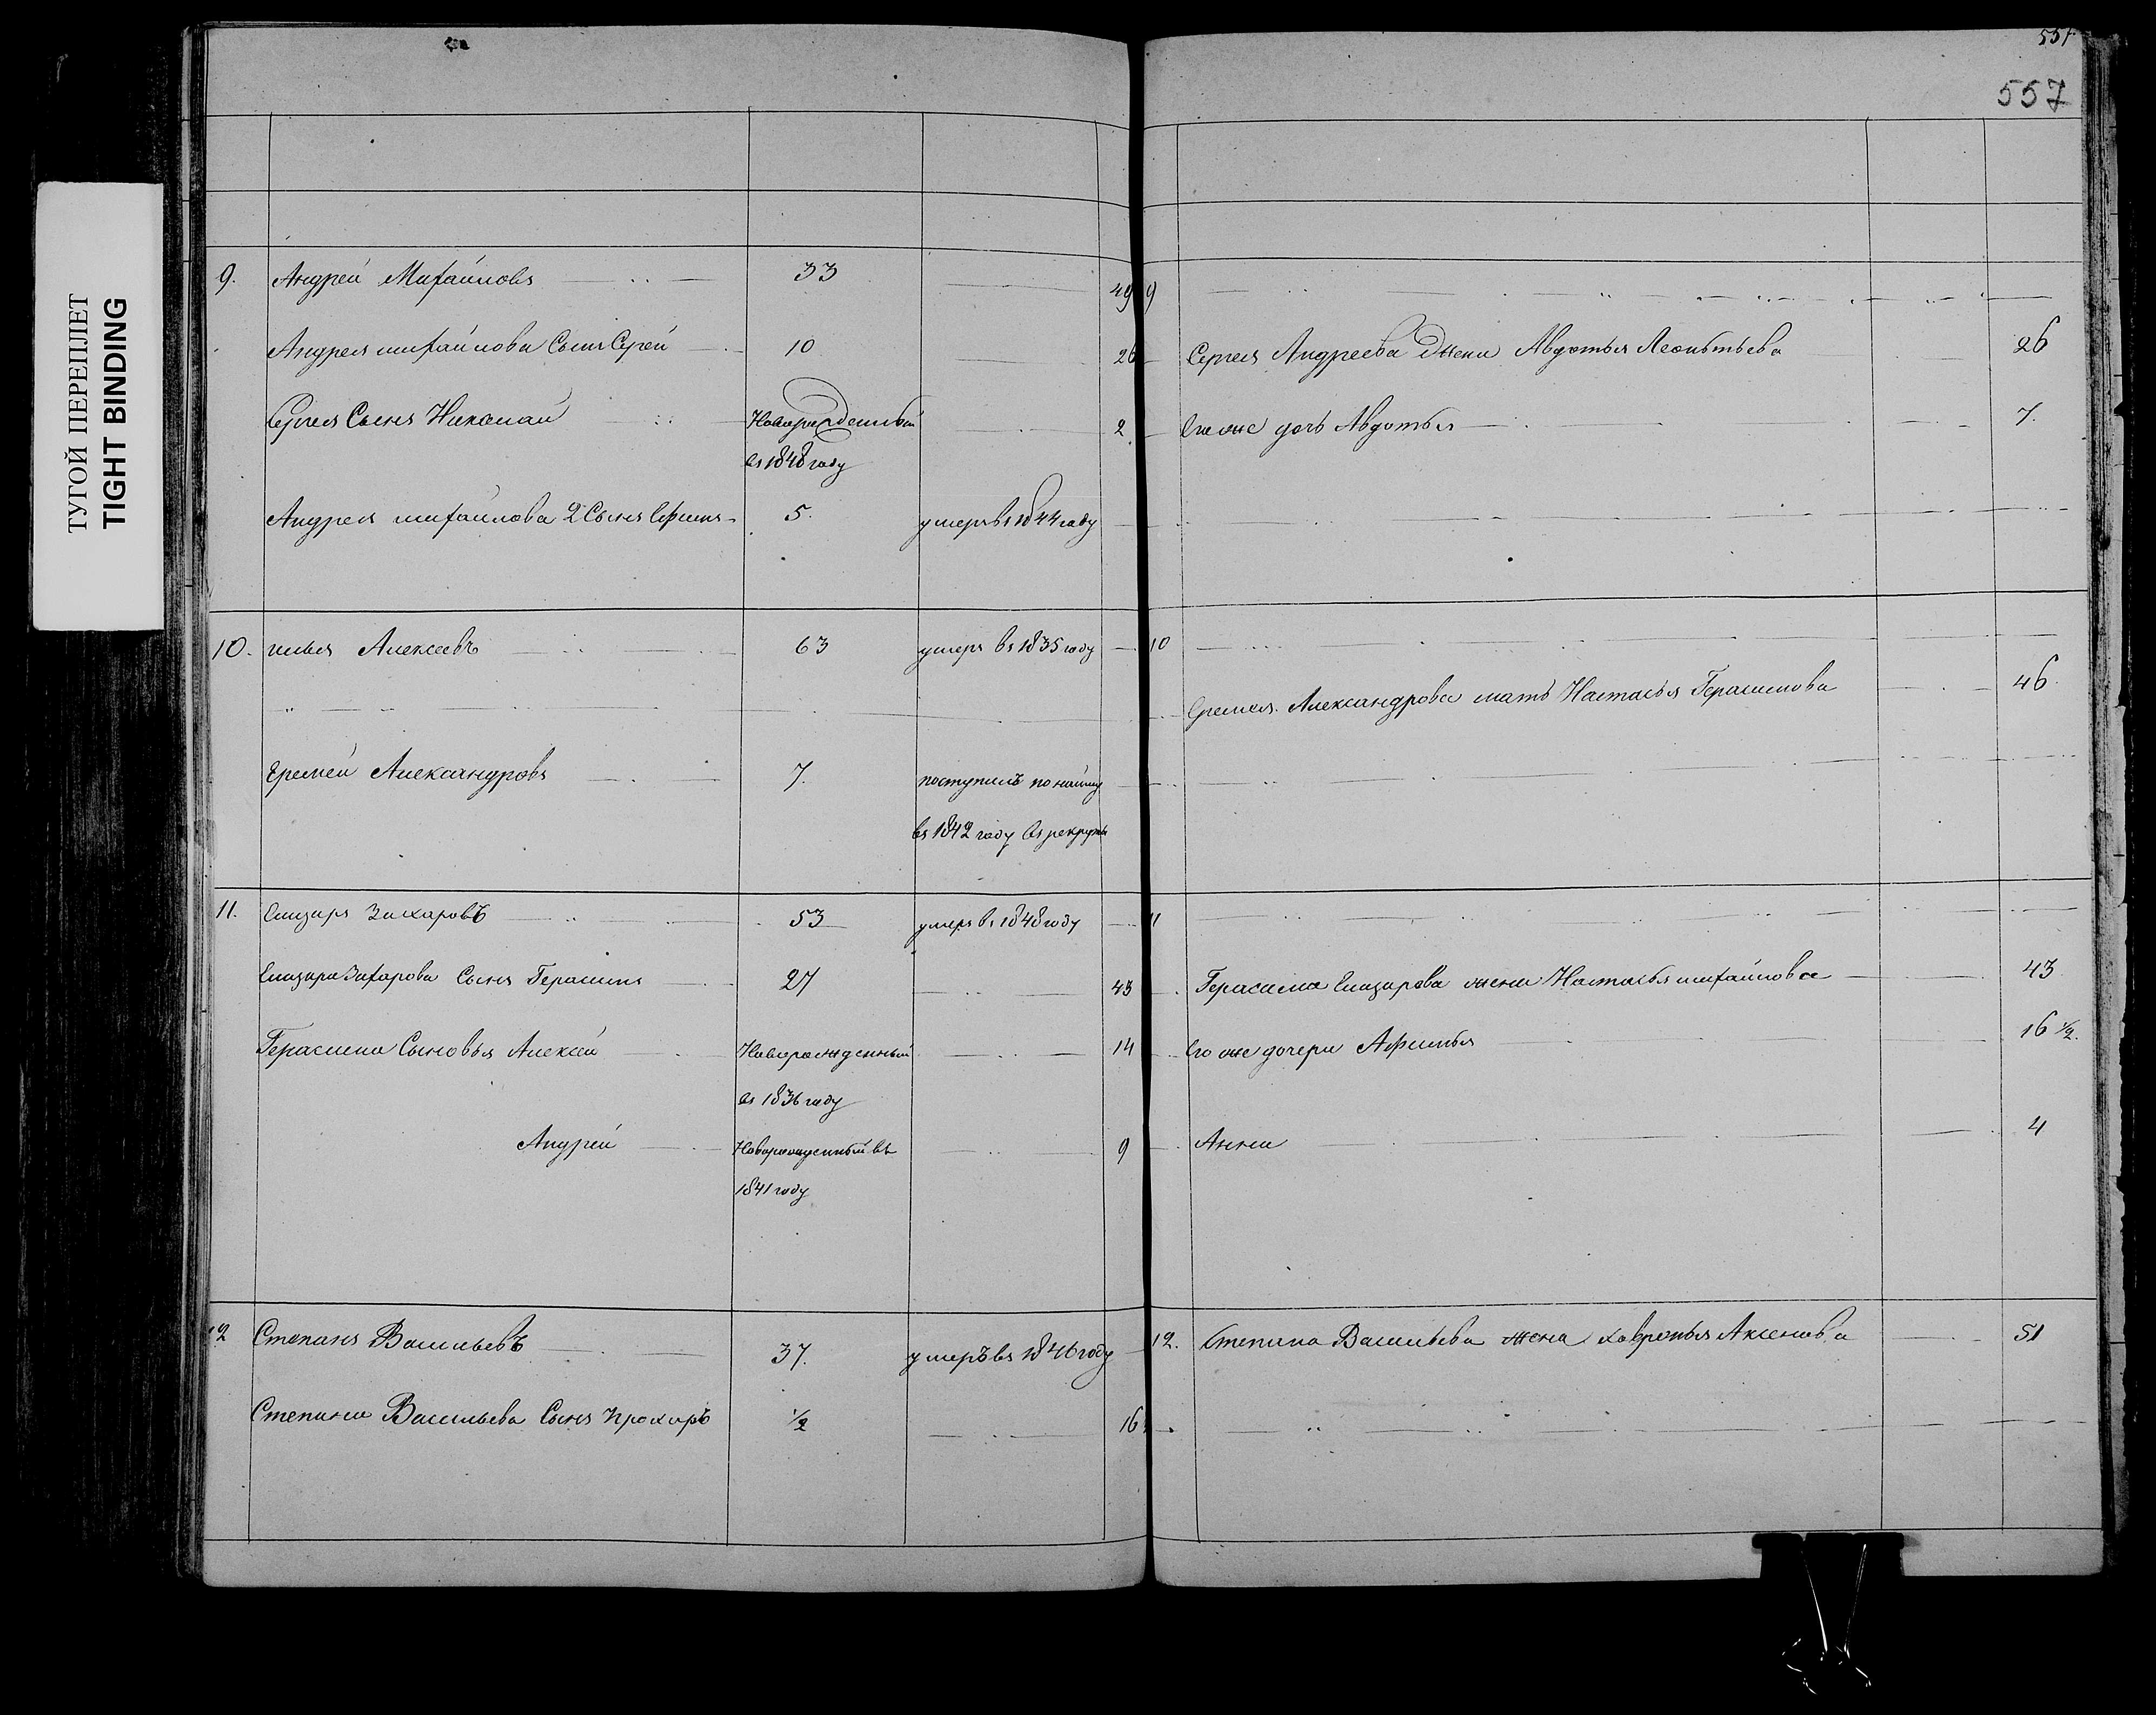 ТУГОЙ ПЕРЕПЛЕТ
TIGHT BINDING
557
9. Андрей Михайловъ 33 49
Андрея михайлова Сынъ Сергей 10 26
Сергея Сынъ Николай Новорожденный 2
въ 1848 году
Андрея михайлова 2 Сынъ Ефимъ 5. умеръ въ 1844 году
10. илья Алексеевъ 63 умеръ въ 1835 году
Еремей Александровъ 7. поступилъ по найму
въ 1842 году въ рекруты
11. Елизаръ Захаровъ 53 умеръ въ 1848 году
Елизара Захарова Сынъ Герасимъ 27 43
Герасима Сыновья Алексей Новорожденный 14
въ 1836 году
Андрей Новорожденный въ 9
1841 году
12 Степанъ Васильевъ 37. умеръ въ 1846 году
Степана Васильева Сынъ Прохоръ 1/2 16
9
Сергея Андреева жена Авдотья Леонтьева 26
Его же дочь Авдотья 7.
10
Еремея Александрова мать Настасья Герасимова 46
11
Герасима Елизарова жена Настасья михайлова 43
Его же дочери Афимья 16 1/2.
Анна 4
12. Степана Васильева жена хавронья Аксенова 51